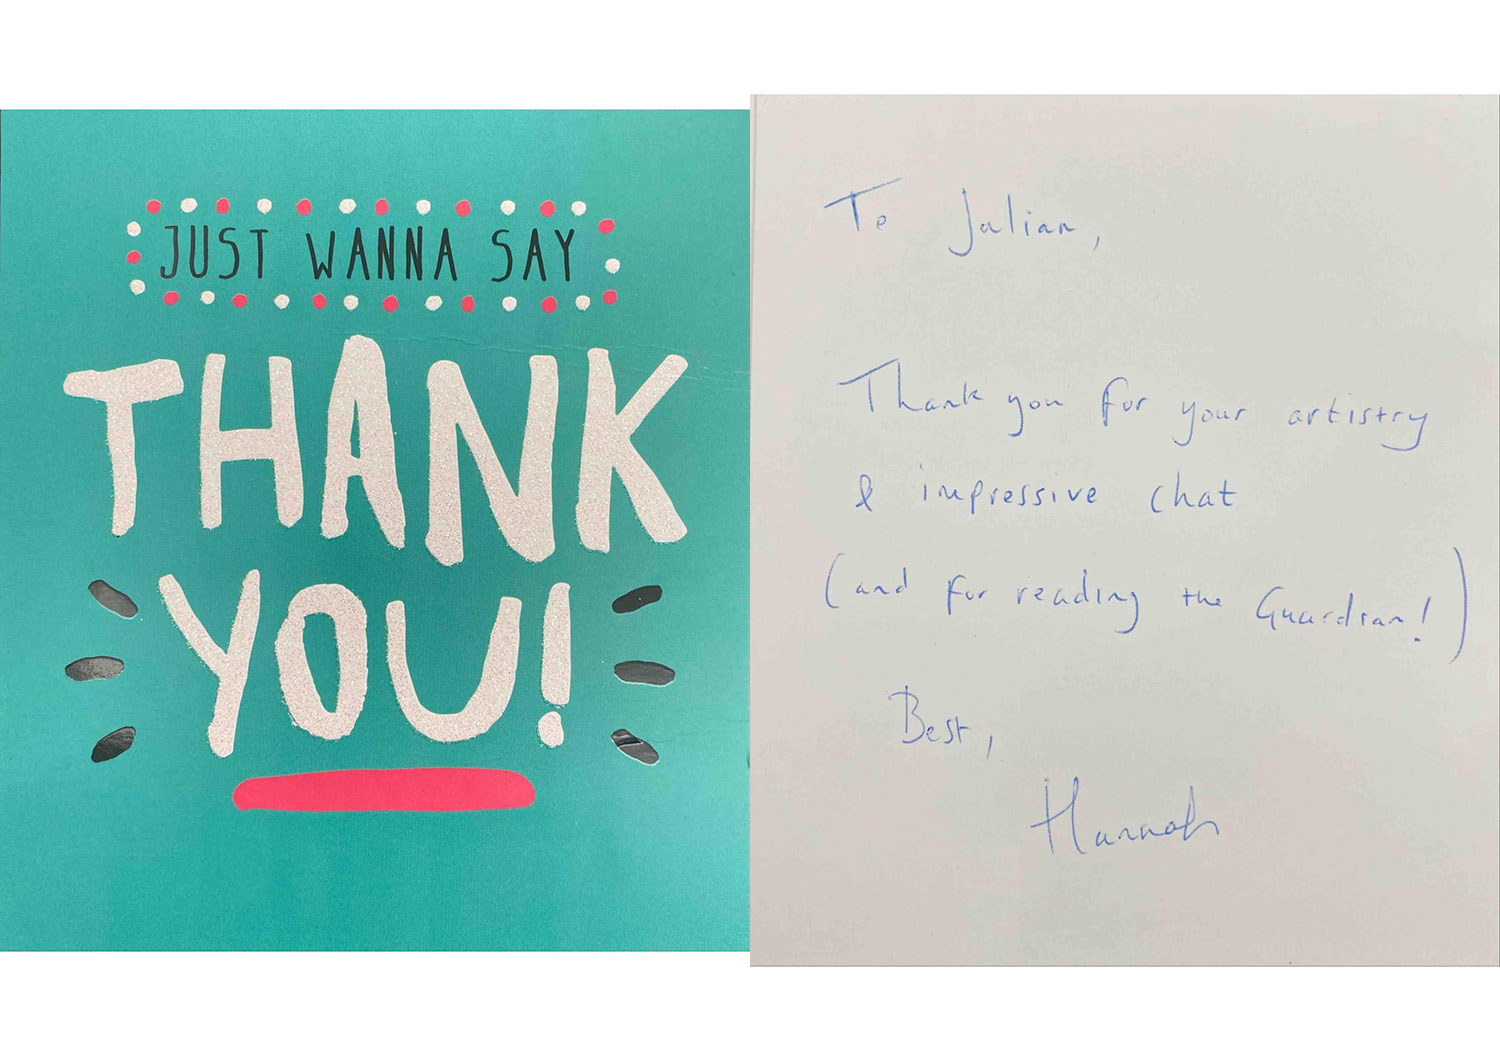 JUST WANNA SAY
THANK
YOU!
To Julian,
Thank you for your artistry
& impressive chat
(and for reading the Guardian!)
Best,
Hannah